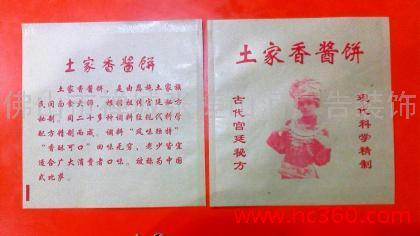 土家香酱饼
土家香酱饼，是由恩施土家族
民间面食大师，
秘制 用二十多
配方精制而成。 调料"风味独特"
"香酥可口"回味无穷，老少皆宜
适合广大消费者口味。故称为中国
式比萨。
土家香酱饼
古代宫廷秘方
现代科学精制
佛山
告装饰
www.hc360.com